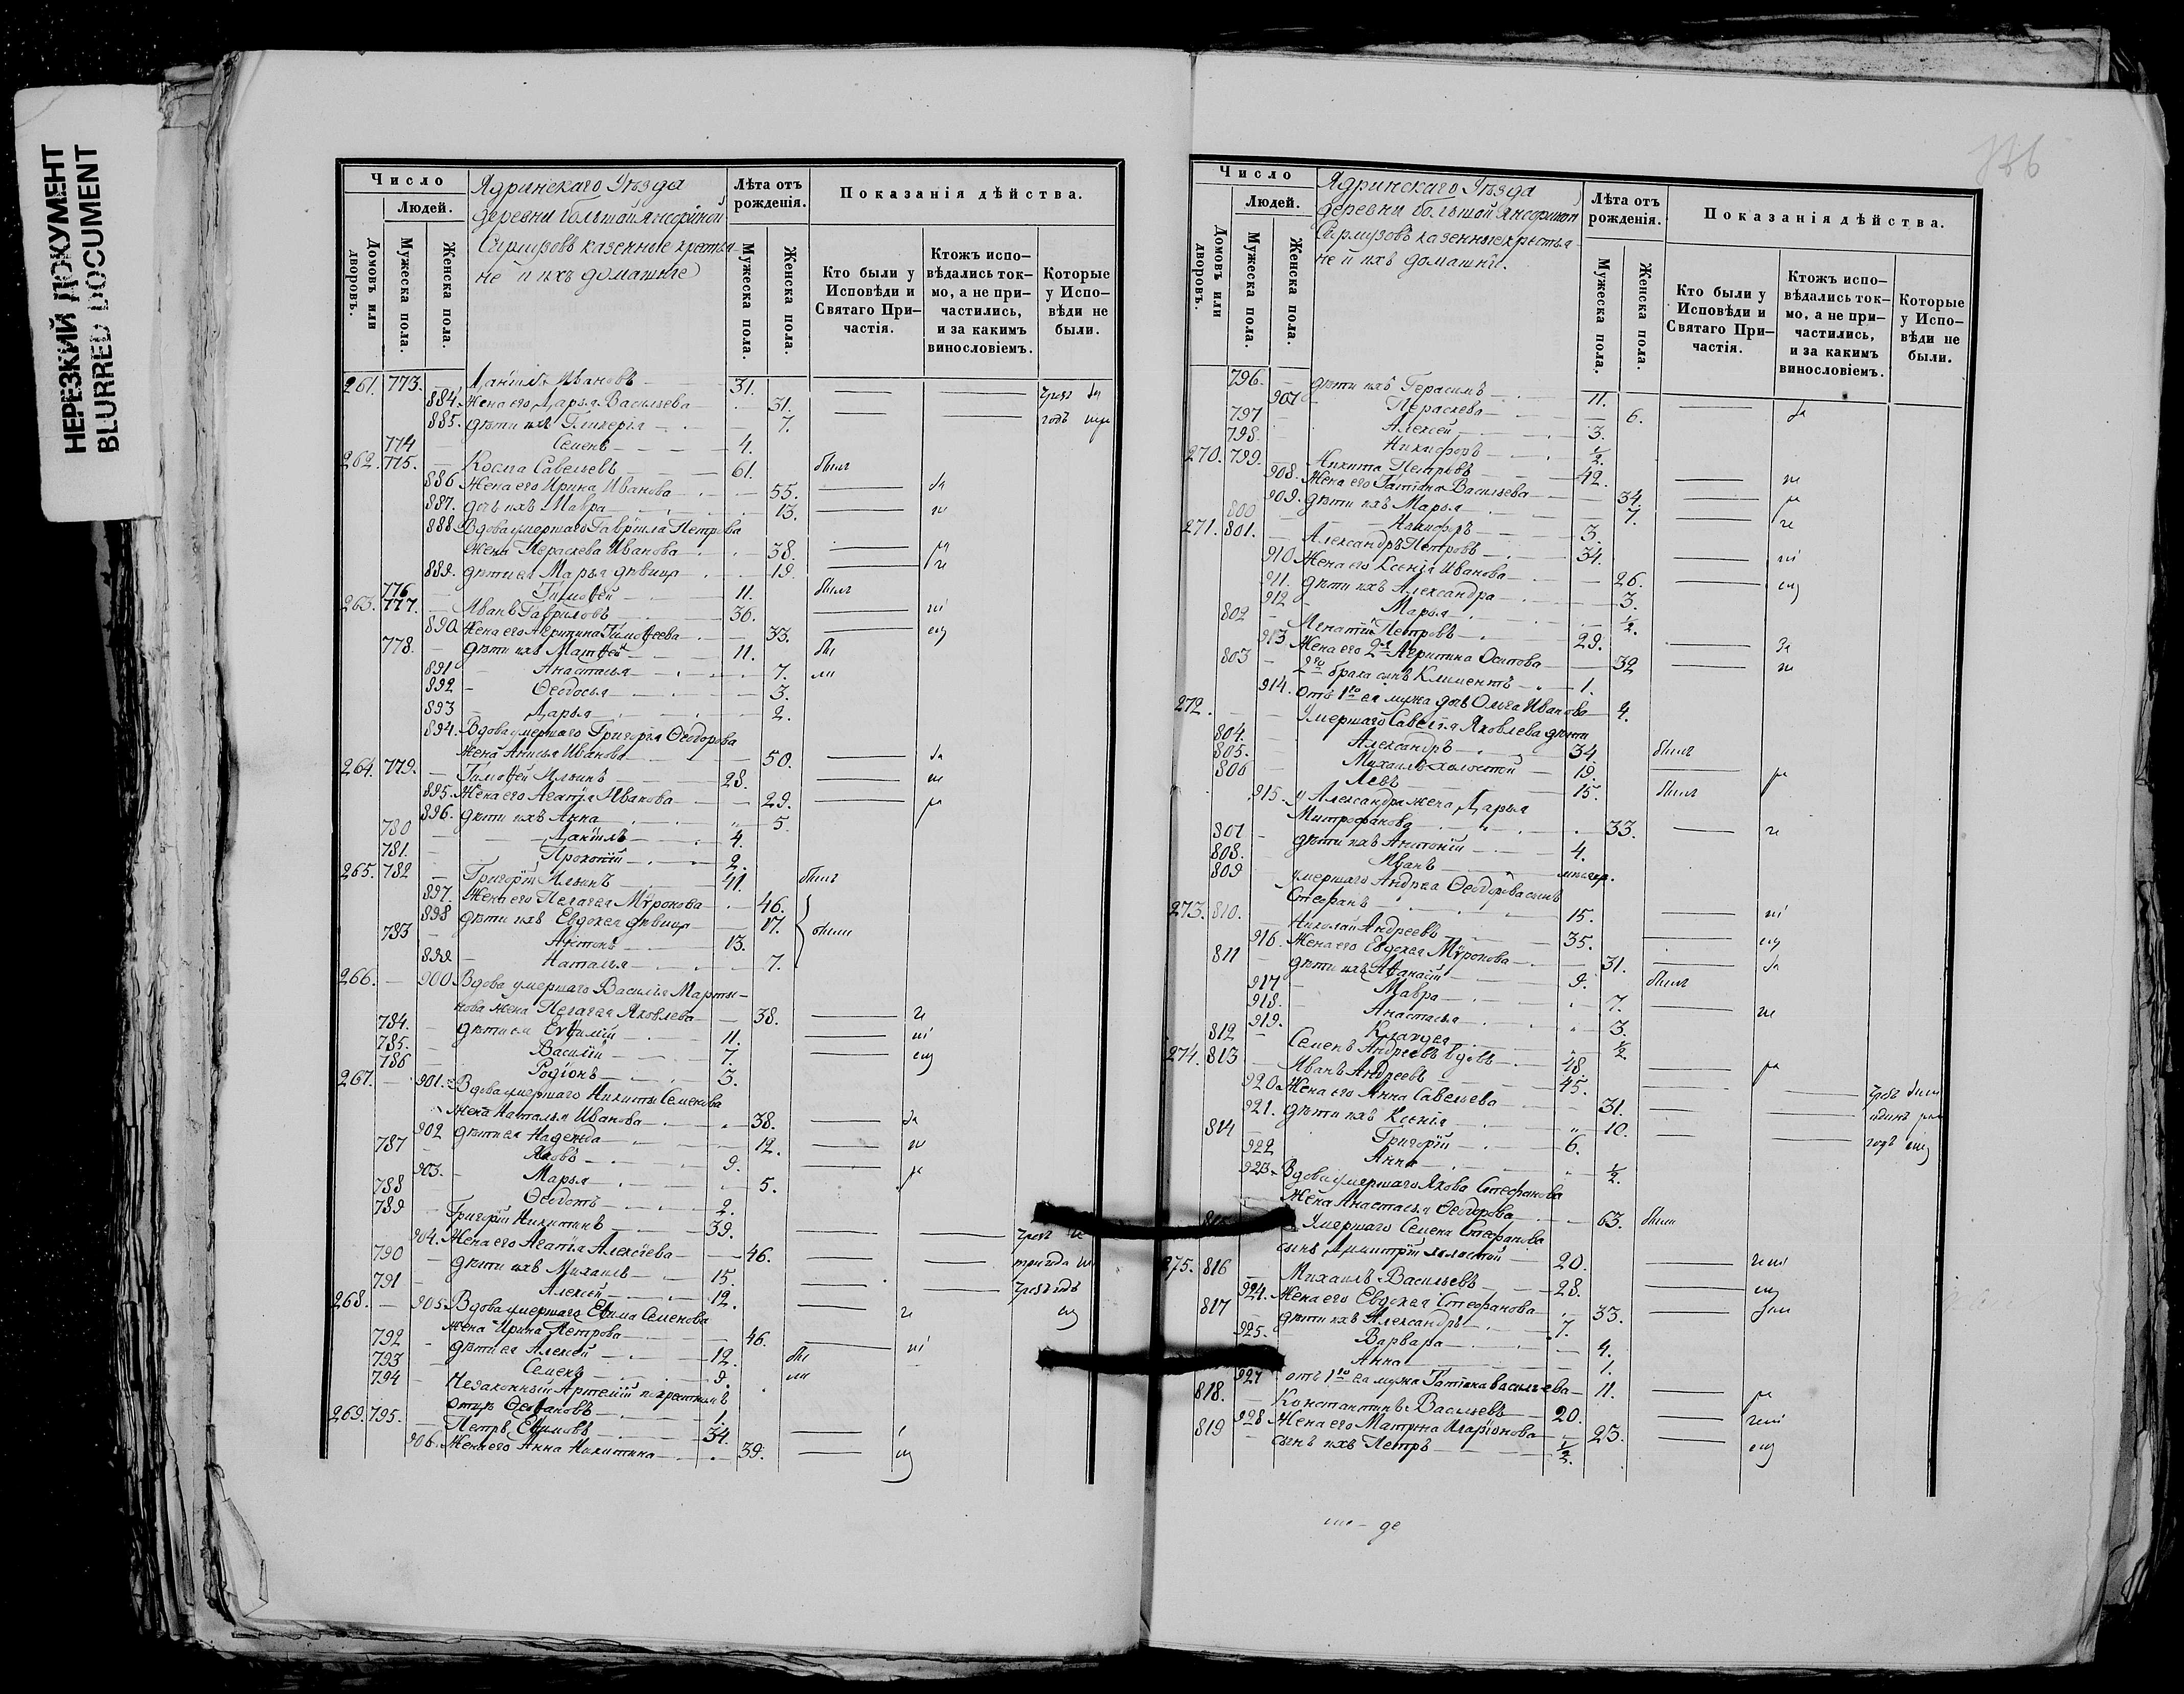 НЕРЕЗКИЙ ДОКУМЕНТ
BLURRED DOCUMENT
Число
Людей.
Домовъ или дворовъ.
Мужеска пола.
Женска пола.
Ядринскаго Уѣзда
деревни большой
казенные крестья-
не и ихъ домашніе
Лѣта отъ рожденія.
Мужеска пола.
Женска пола.
Показанія дѣйства.
Кто были у Исповѣди и Святаго При-частія.
Ктожъ испо-вѣдались ток-мо, а не при-частились, и за какимъ винословіемъ.
Которые у Испо-вѣди не были.
261. 773. Даніилъ Ивановъ 31.
884. Жена его Дарья Васильева 31.
885. дѣти ихъ Гликерія 7.
774 Семенъ 4.
262. 775. Косма Савельевъ 61. былъ
886 Жена его Ирина Иванова 55.
887. дочь ихъ Мавра 13.
888 Вдова умершаго Гавріила Петрова
жена Параскева Иванова 38.
889. дѣти ея Марья дѣвица 19.
776 Тимоѳей 11. былъ
263. 777. Иванъ Гавриловъ 36.
890 Жена его Агрипина Тимоѳеева 33.
778. дѣти ихъ Матѳей 11.
891 Анастасья 7.
892 Ѳеодосья 3.
893 Дарья 2.
894. Вдова умершаго Григорья Ѳеодорова
жена Анисья Иванова 50.
264. 779. Тимоѳей Ильинъ 28.
895. Жена его Агаѳія Иванова 29.
896. дѣти ихъ Анна 5.
780 Даніилъ 4.
781. Прокопій 2.
265. 782 Григорій Ильинъ 41. былъ
897. Жена его Пелагея Мѵронова 46.
898 дѣти ихъ Евдокея дѣвица 17. были
783 Антонъ 13.
899 Наталья 7.
266. 900 Вдова умершаго Василья Марты-
нова жена Пелагея Яковлева 38.
784. дѣти ея Евѳимій 11.
785. Василій 7.
786 Родіонъ 3.
267. 901. Вдова умершаго Никиты Семенова
жена Наталья Иванова 38.
902 дѣти ея Надежда 12.
787 Яковъ 9.
903. Марья 5.
788 Ѳеодотъ 2.
789 Григорій Никитинъ 39.
904. Жена его Агаѳія Алексіева 46.
790 дѣти ихъ Михаилъ 15.
791 Алексій 12.
268. 905 Вдова умершаго Евѳима Семенова
жена Ирина Петрова 46.
792 дѣти ея Алексѣй 12.
793 Семенъ 9.
794 Незаконный Артемій
1.
269. 795. Петръ Евѳимовъ 34.
906. Жена его Анна Никитина 39.
Число
Людей.
Домовъ или дворовъ.
Мужеска пола.
Женска пола.
Ядринскаго Уѣзда
деревни большой
казенные крестья
не и ихъ домашніи.
Лѣта отъ рожденія.
Мужеска пола.
Женска пола.
Показанія дѣйства.
Кто были у Исповѣди и Святаго При-частія.
Ктожъ испо-вѣдались ток-мо, а не при-частились, и за какимъ винословіемъ.
Которые у Испо-вѣди не были.
796. дѣти ихъ Герасимъ 11.
907 Пераскева 6.
797 Алексей 3.
798. Никифоръ ½.
270. 799. Никита Петровъ 42.
908. Жена его Татіана Васильева 34.
909. дѣти ихъ Марья 7.
800 Никифоръ 3.
271. 801. Александръ Петровъ 34.
910 Жена его Ксенія Иванова 26.
911. дѣти ихъ Александра 3.
912 Марья ½.
802 Игнатій Петровъ 29.
913 Жена его 2я Агрипина Осипова 32
803 2го брака сынъ Климентъ 1.
914. Отъ 1го ея мужа дочь Ольга Иванова 4.
272. Умершаго Савелія Яковлева дѣти
804. Александръ 34. былъ
805. Михаилъ холостой 19.
806 Левъ 15. былъ
915. У Александра жена Дарья
Митрофанова 33.
807 дѣти ихъ Антоній 4.
808. Иванъ
809 умершаго Андрея Ѳеодорова сынъ
Стефанъ 15.
273. 810. Николай Андреевъ 35.
916. Жена его Евдокея Мѵронова 31.
811 дѣти ихъ Аѳанасій 9. былъ
917 Мавра 7.
918. Анастасья 3.
919. Клавдея ½
812 Семенъ Андреевъ вдовъ 48.
274. 813 Иванъ Андреевъ 45.
920 Жена его Анна Савельева 31.
921. дѣти ихъ Ксенія 10.
814 Григорій 6.
922 Анна ½
923 Вдова умершаго Якова Стефанова
жена Анастасья Ѳеодорова 63.
Умершаго Семена Стефанова
сынъ Димитрій холостой 20.
275. 816 Михаилъ Васильевъ 28.
924. Жена его Евдокея Стефанова 33.
817 дѣти ихъ Александръ 7.
925. Варвара 4.
Анна 1.
927 отъ 1го ея мужа Татіана Васильева 11.
818. Константинъ Васильевъ 20.
928 Жена его Матрона Иларіонова 23.
819 сынъ ихъ Петръ ½.